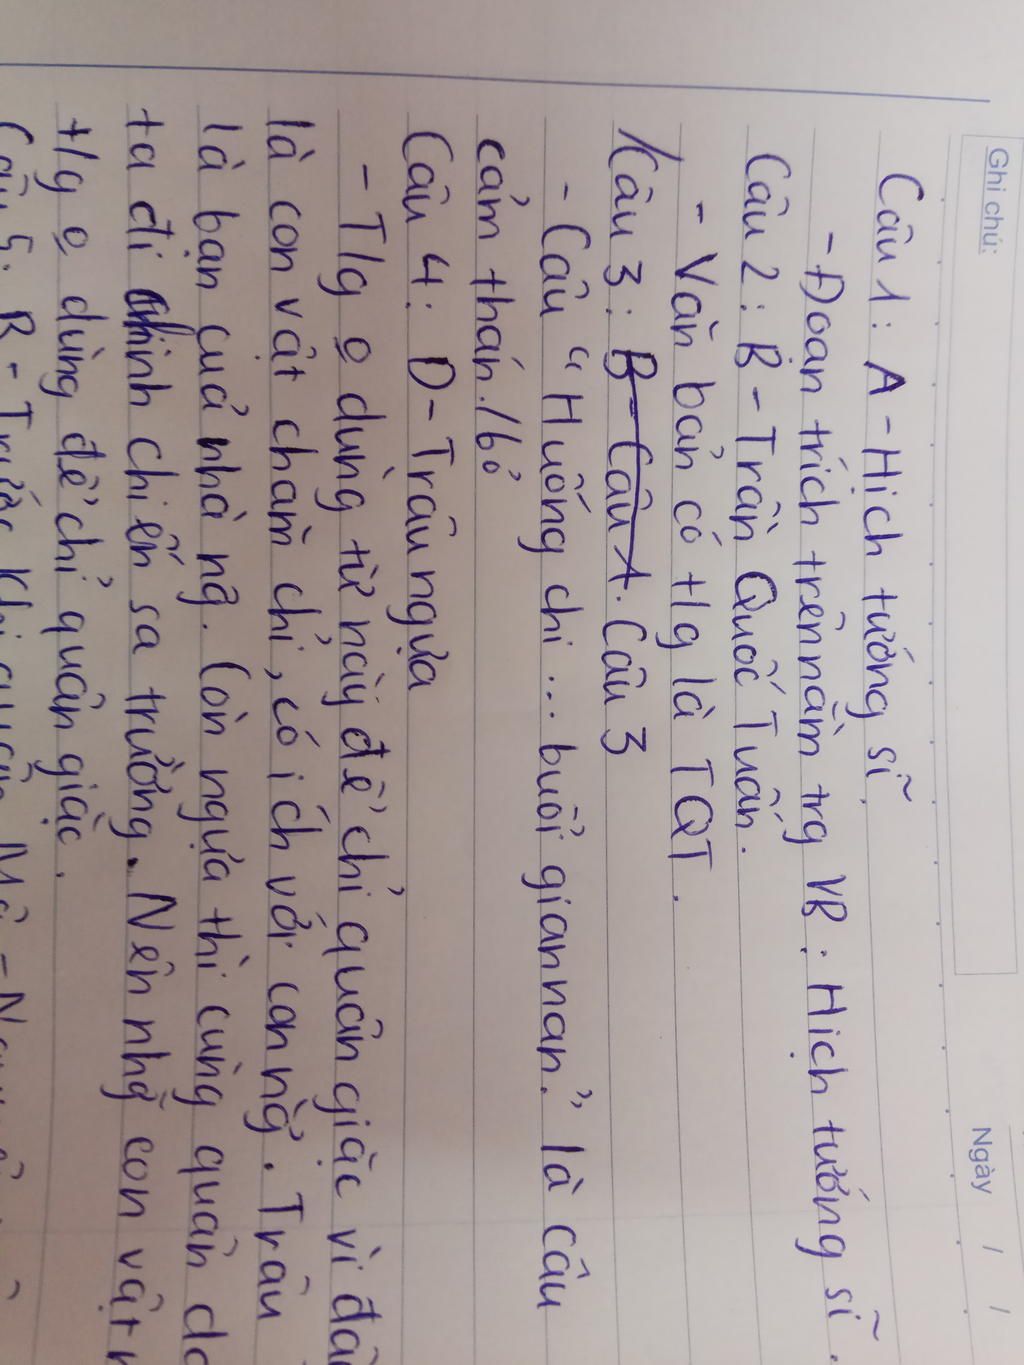 Ghi chú:
Ngày / /
Câu 1: A - Hịch tướng sĩ.
- Đoạn trích trên nằm trg VB: Hịch tướng sĩ.
Câu 2: B - Trần Quốc Tuấn.
- Văn bản có t/g là TQT.
Câu 3: B - Câu A. Câu 3
- Câu "Huống chi... buổi gian nan." là câu
cảm thán./bỏ
Câu 4: D - Trâu ngựa
- T/g o dùng từ này để chỉ quân giặc vì đâ
là con vật chăm chỉ, có ích với con ng. Trâu
là bạn của nhà ng. Còn ngựa thì cùng quân
ta đi chinh chiến sa trường. Nên nhg con vật n
t/g o dùng để chỉ quân giặc.
Câu 5: B - Trước khi